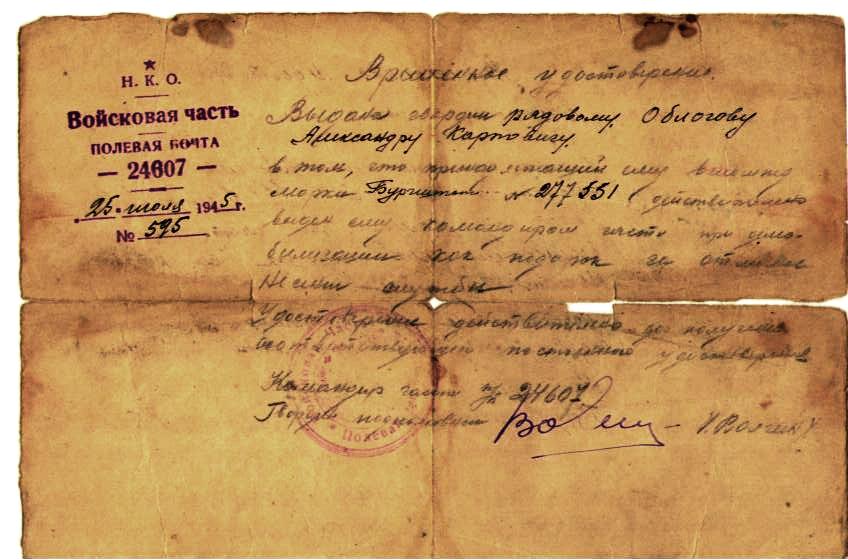 Н. К. О.
Войсковая часть
ПОЛЕВАЯ ПОЧТА
— 24607 —
25 июля 1945 г.
№ 595
Временное удостоверение.
Выдано гвардии рядовому Облогову
Александру Карповичу
в том, что принадлежащий ему
марки № 277551 действительно
выдан ему командиром части при демо-
билизации как подарок за отличное
несение службы
Удостоверение действительно до получения
соответствующего постоянного удостоверения
Командир части п/п 24607
Гвардии подполковник
Полевая